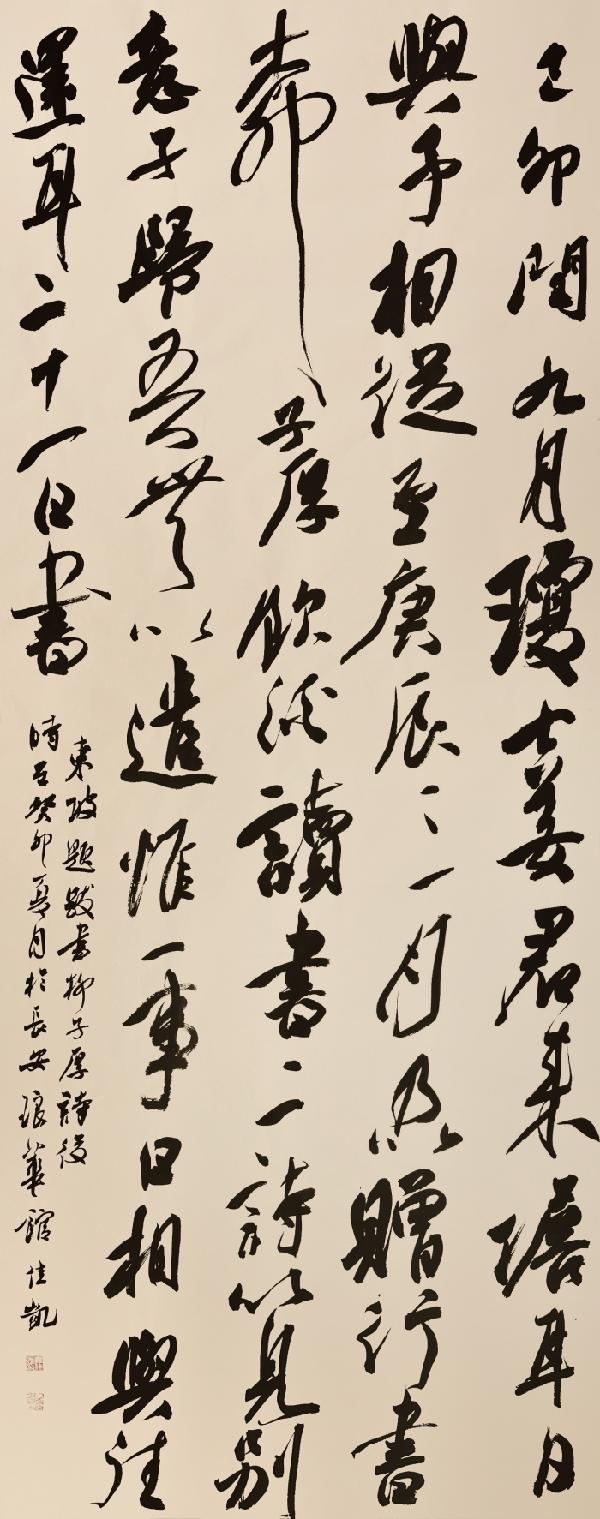 己卯閏九月瓊士姜君來儋耳日
與予相從至庚辰三月乃以贈行書
柳子厚飲酒讀書二詩以見別
意子歸吾無以遣惟一事日相與往
還耳二十一日書
東坡題跋書柳子厚詩後
時在癸卯夏月於長安琅華館凱